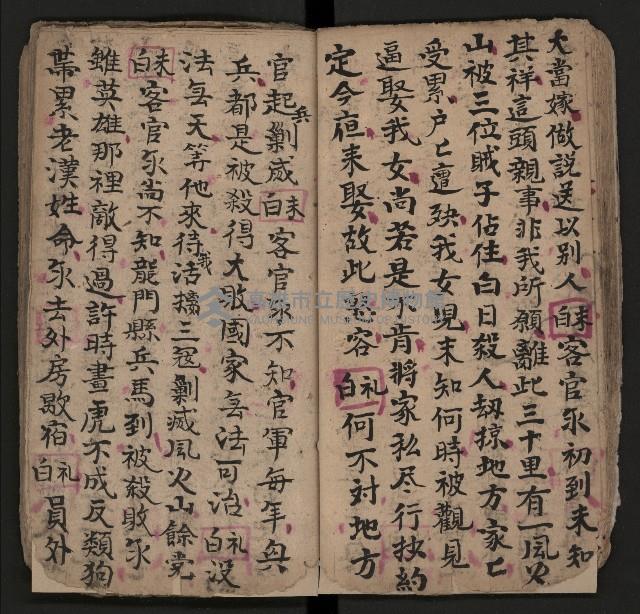 大當嫁做説送以别人 白末 客官尔初到未知
其祥這頭親事非我所願離此三十里有一風火
山被三位贼子佔住白日殺人刼掠地方家亡
受累户亡遭殃我女現未知何時被觀見
逼娶我女尚若是不肯將家私尽行抄約
定今亱来娶故此愁容 白礼 何不对地方
官起兵剿滅 白末 客官尔不知官軍每年兴
兵都是被殺得大敗國家無法可治 白礼 没
法無天等他來待我活擒三冦剿滅風火山餘党
白末 客官尔尚不知龍門縣兵馬到被殺敗尔
雖英雄那裡敵得過許時畫虎不成反類狗
帶累老漢姓命尔去外房歇宿 白礼 員外
高雄市立歷史博物館
KAOHSIUNG MUSEUM OF HISTORY